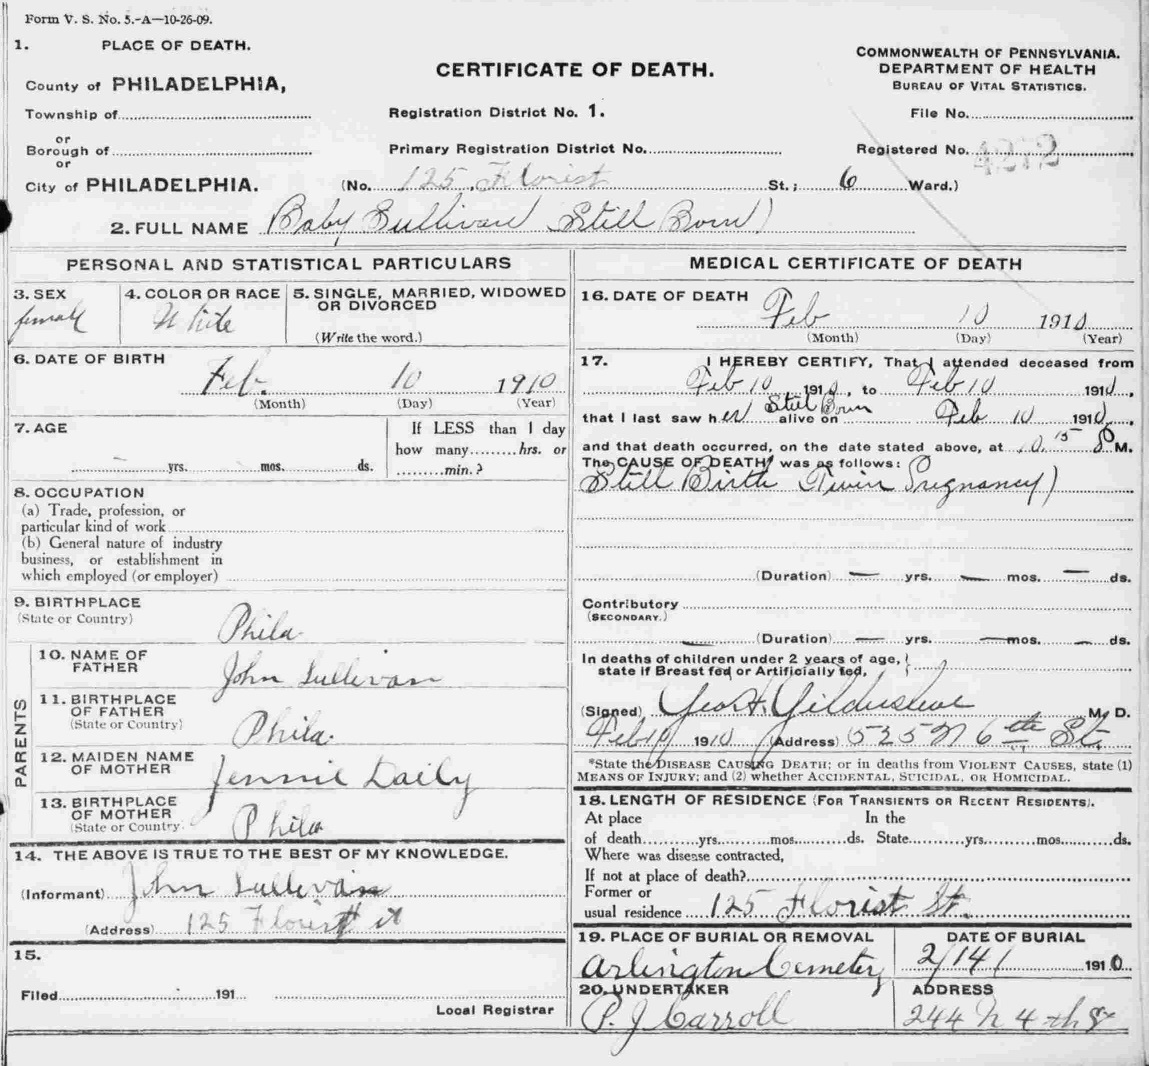 Form V. S. No. 5.-A—10-26-09.
1. PLACE OF DEATH.
County of PHILADELPHIA,
Township of
or
Borough of
or
City of PHILADELPHIA.
CERTIFICATE OF DEATH.
Registration District No. 1.
Primary Registration District No.
(No. 125 Florist St.; 6 Ward.)
COMMONWEALTH OF PENNSYLVANIA.
DEPARTMENT OF HEALTH
BUREAU OF VITAL STATISTICS.
File No.
Registered No. 4272
2. FULL NAME Baby Sullivan (Still Born)
PERSONAL AND STATISTICAL PARTICULARS
3. SEX
female
4. COLOR OR RACE
White
5. SINGLE, MARRIED, WIDOWED
OR DIVORCED
(Write the word.)
6. DATE OF BIRTH
Feb. 10 1910
(Month) (Day) (Year)
7. AGE
yrs. mos. ds.
If LESS than 1 day
how many hrs. or
min.?
8. OCCUPATION
(a) Trade, profession, or
particular kind of work
(b) General nature of industry
business, or establishment in
which employed (or employer)
9. BIRTHPLACE
(State or Country)
Phila.
PARENTS
10. NAME OF
FATHER
John Sullivan
11. BIRTHPLACE
OF FATHER
(State or Country)
Phila.
12. MAIDEN NAME
OF MOTHER
Jennie Daily
13. BIRTHPLACE
OF MOTHER
(State or Country.
Phila
14. THE ABOVE IS TRUE TO THE BEST OF MY KNOWLEDGE.
(Informant) John Sullivan
(Address) 125 Florist st
15.
Filed 191
Local Registrar
MEDICAL CERTIFICATE OF DEATH
16. DATE OF DEATH
Feb 10 1910
(Month) (Day) (Year)
17. I HEREBY CERTIFY, That I attended deceased from
Feb 10 1910, to Feb 10 1910,
that I last saw her Still Born alive on Feb 10 1910,
and that death occurred, on the date stated above, at 10.15 P M.
The CAUSE OF DEATH* was as follows:
Still Birth (Twin Pregnancy)
(Duration) — yrs. — mos. — ds.
Contributory
(SECONDARY.)
(Duration) — yrs. — mos. — ds.
In deaths of children under 2 years of age,
state if Breast fed or Artificially fed,
(Signed) Geo. H. Gildersleeve M. D.
Feb 10 1910 (Address) 525 N 6th St.
*State the DISEASE CAUSING DEATH; or in deaths from VIOLENT CAUSES, state (1)
MEANS OF INJURY; and (2) whether ACCIDENTAL, SUICIDAL, OR HOMICIDAL.
18. LENGTH OF RESIDENCE (FOR TRANSIENTS OR RECENT RESIDENTS).
At place In the
of death yrs. mos. ds. State yrs. mos. ds.
Where was disease contracted,
If not at place of death?
Former or
usual residence 125 Florist St.
19. PLACE OF BURIAL OR REMOVAL
Arlington Cemetery
DATE OF BURIAL
2/14/ 1910.
20. UNDERTAKER
P. J. Carroll
ADDRESS
244 N 4th St